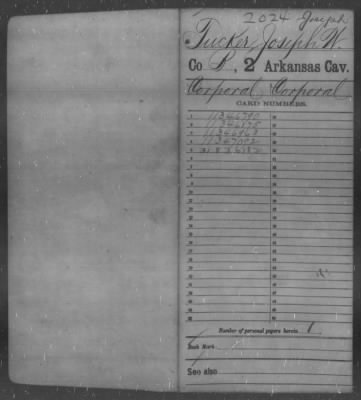 2024 Joseph
Tucker, Joseph W.
Co. B, 2 Arkansas Cav.
Corporal Corporal
CARD NUMBERS.
1 11346790
2 11346875
3 11346963
4 11347042
5
Number of personal papers herein 1
Book Mark:
See also